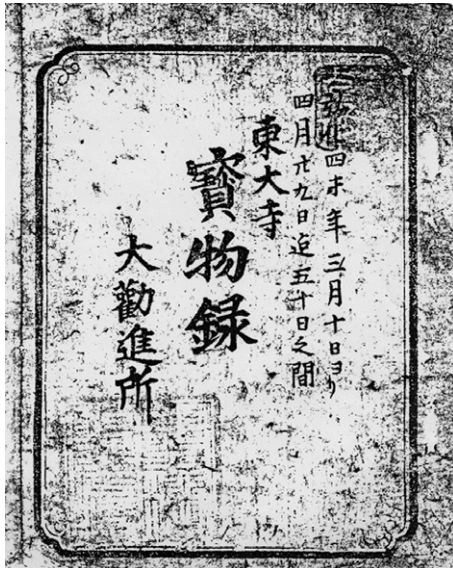 弘化四未年三月十日ヨリ
四月廿九日迠五十日之間
東大寺
寶物録
大勸進所